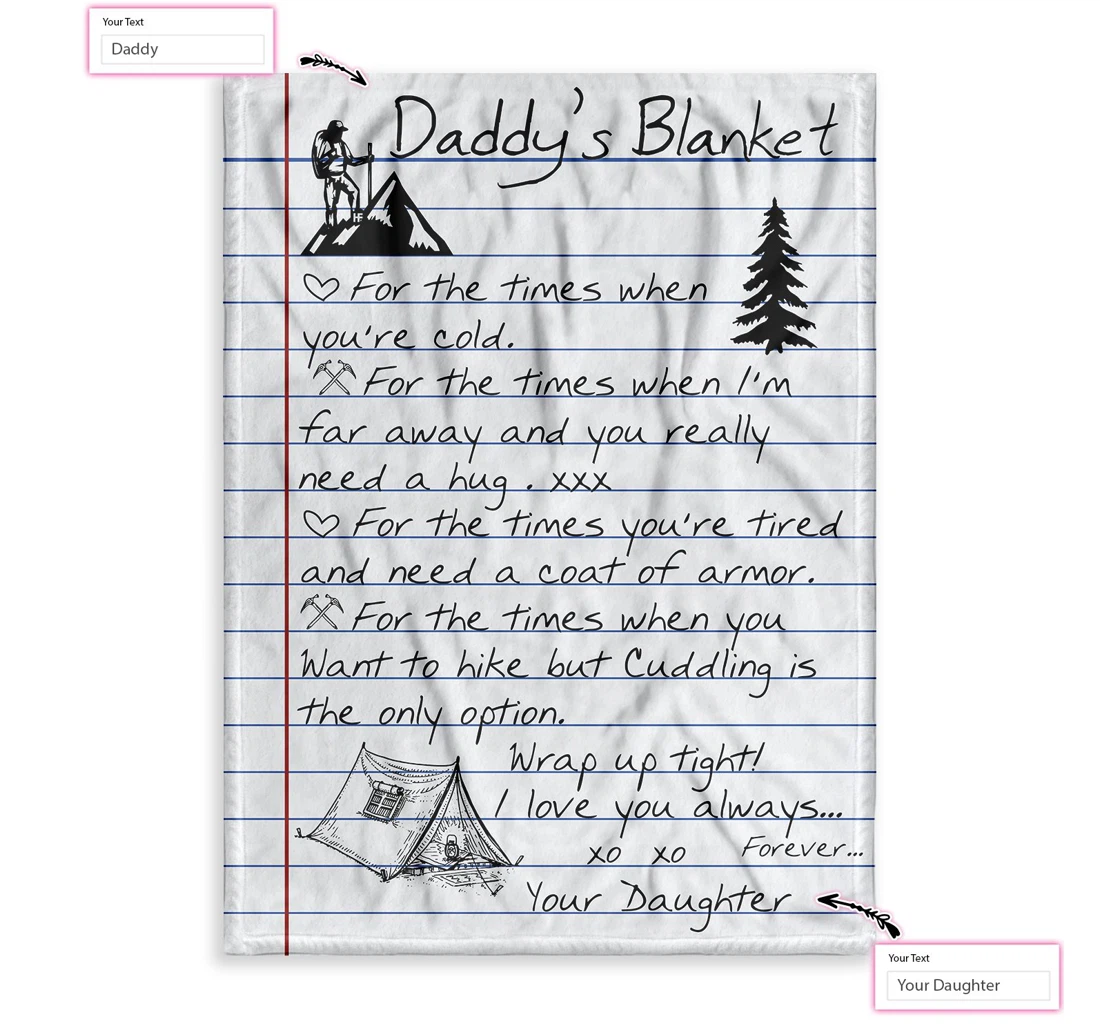 Your Text
Daddy
Daddy's Blanket
HF
For the times when
you're cold.
For the times when I'm
far away and you really
need a hug . xxx
For the times you're tired
and need a coat of armor.
For the times when you
Want to hike but Cuddling is
the only option.
Wrap up tight!
I love you always...
xo xo Forever...
Your Daughter
Your Text
Your Daughter